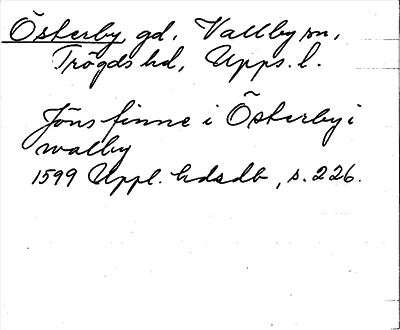 Österby gd, Vallby sn,
Trögds hd, Upps. l.
Jöns finne i Österby i
walby
1599 Uppl. hdsdb, s. 226.